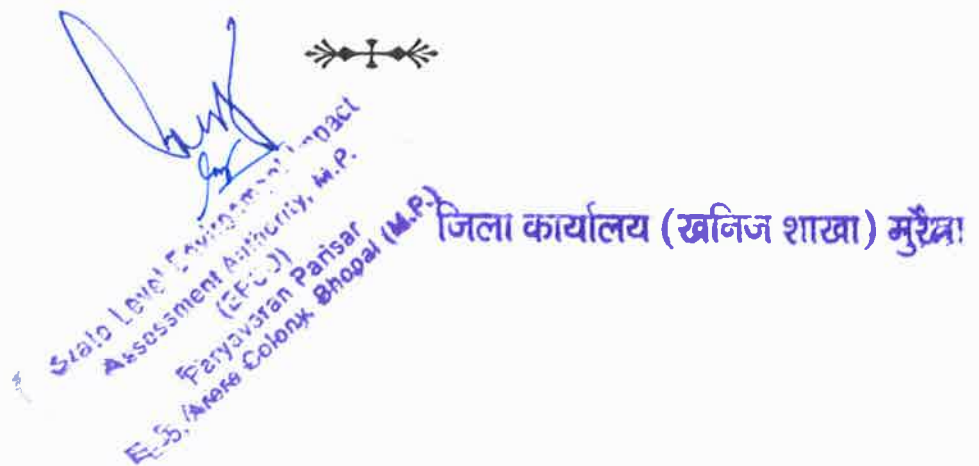 State Level Environment Impact
Assessment Authority, M.P.
(EPCO)
Paryavaran Parisar
E-5, Arera Colony, Bhopal (M.P.)
जिला कार्यालय (खनिज शाखा) मुरैना